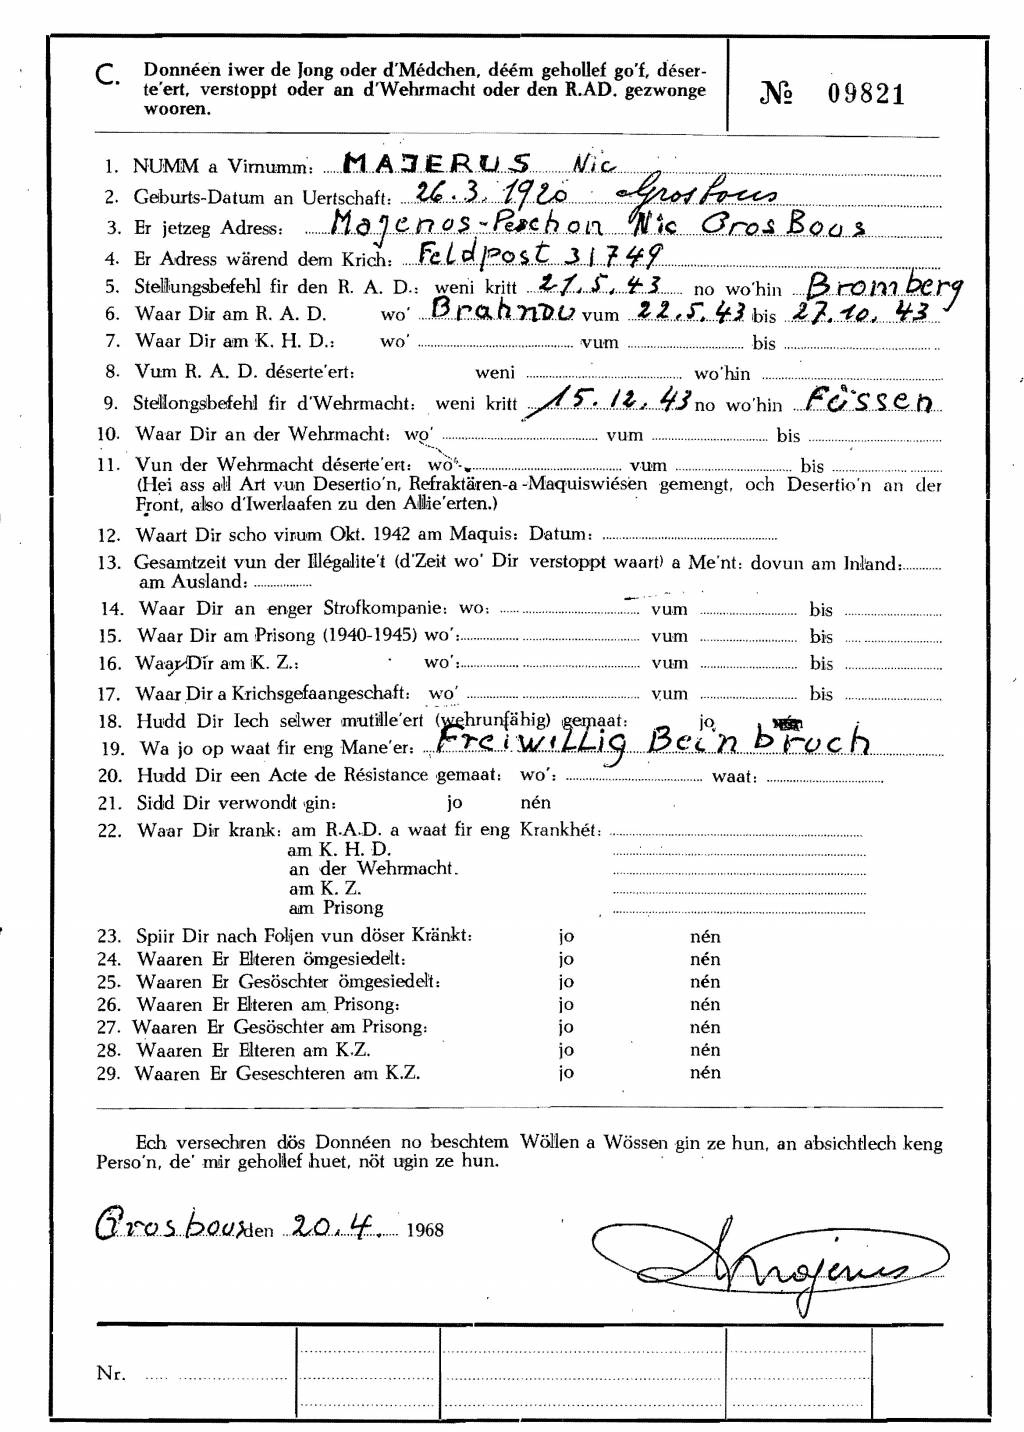 C. Donnéen iwer de Jong oder d'Médchen, déém gehollef go'f, déser-
te'ert, verstoppt oder an d'Wehrmacht oder den R.AD. gezwonge
wooren.
№ 09821
1. NUMM a Virnumm: MAJERUS Nic
2. Geburts-Datum an Uertschaft: 26.3.1920 Grosbous
3. Er jetzeg Adress: Majerus-Peschon Nic GrosBous
4. Er Adress wärend dem Krich: Feldpost 31749
5. Stellungsbefehl fir den R. A. D.: weni kritt 21.5.43 no wo'hin Bromberg
6. Waar Dir am R. A. D. wo' Brahnau vum 22.5.43 bis 27.10.43
7. Waar Dir am K. H. D.: wo' vum bis
8. Vum R. A. D. déserte'ert: weni wo'hin
9. Stellongsbefehl fir d'Wehrmacht: weni kritt 15.12.43 no wo'hin Füssen
10. Waar Dir an der Wehrmacht: wo' vum bis
11. Vun der Wehrmacht déserte'ert: wo' vum bis
(Hei ass all Art vun Desertio'n, Refraktären-a-Maquiswiésen gemengt, och Desertio'n an der
Front, also d'Iwerlaafen zu den Allie'erten.)
12. Waart Dir scho virum Okt. 1942 am Maquis: Datum:
13. Gesamtzeit vun der Illégalite't (d'Zeit wo' Dir verstoppt waart) a Me'nt: dovun am Inland:
am Ausland:
14. Waar Dir an enger Strofkompanie: wo: vum bis
15. Waar Dir am Prisong (1940-1945) wo': vum bis
16. Waar Dir am K. Z.: wo': vum bis
17. Waar Dir a Krichsgefaangeschaft: wo' vum bis
18. Hudd Dir Iech selwer mutille'ert (wehrunfähig) gemaat: jo nén
19. Wa jo op waat fir eng Mane'er: Freiwillig Beinbruch
20. Hudd Dir een Acte de Résistance gemaat: wo': waat:
21. Sidd Dir verwondt gin: jo nén
22. Waar Dir krank: am R.A.D. a waat fir eng Krankhét:
am K. H. D.
an der Wehrmacht.
am K. Z.
am Prisong
23. Spiir Dir nach Foljen vun döser Kränkt: jo nén
24. Waaren Er Elteren ömgesiedelt: jo nén
25. Waaren Er Gesöschter ömgesiedelt: jo nén
26. Waaren Er Elteren am Prisong: jo nén
27. Waaren Er Gesöschter am Prisong: jo nén
28. Waaren Er Elteren am K.Z. jo nén
29. Waaren Er Geseschteren am K.Z. jo nén
Ech versechren dös Donnéen no beschtem Wöllen a Wössen gin ze hun, an absichtlech keng
Perso'n, de' mir gehollef huet, nöt ugin ze hun.
Grosbous den 20.4. 1968
Majerus
Nr.